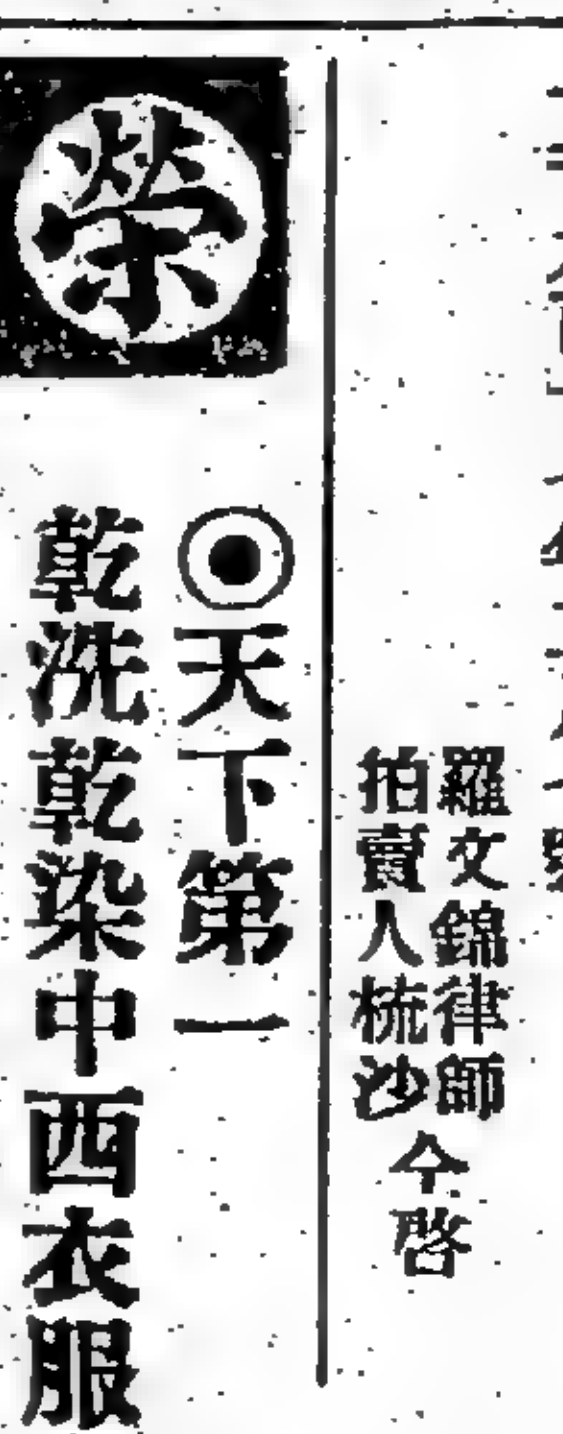 羅文錦律師
拍賣人梳沙
仝啓
榮
◉天下第一
乾洗乾染中西衣服